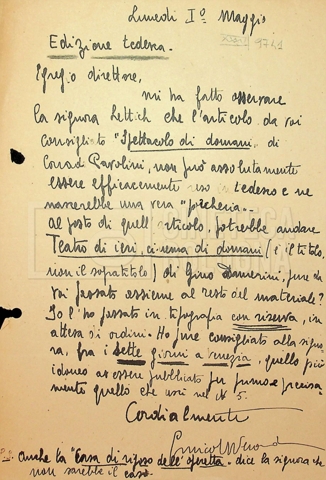 Lunedì I° Maggio
Edizione tedesca.
1941
Egregio direttore,
mi ha fatto osservare
la signora Rettich che l'articolo da voi
consigliato "Spettacolo di domani" di
Corrado Pavolini, non può assolutamente
essere efficacemente reso in tedesco e ne
nascerebbe una vera "porcheria".
Al posto di quell'articolo, potrebbe andare
Teatro di ieri, cinema di domani (è il titolo,
non il sopratitolo) di Gino Damerini, pure da
voi passato assieme al resto del materiale?
Io l'ho passato in tipografia con riserva, in
attesa di ordini. Ho pure consigliato alla signo-
ra, fra i sette giorni a Venezia, quello più
idoneo ad essere pubblicato per primo e precisa-
mente quello che uscì nel N° 5.
Cordialmente
P.S. Anche la "Casa di riposo dell'operetta" dice la signora che
non sarebbe il caso.